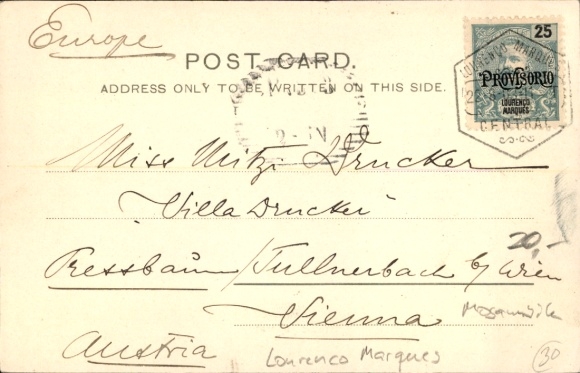 Europe
POST CARD.
ADDRESS ONLY TO BE WRITTEN ON THIS SIDE.
25
PROVISORIO
LOURENÇO
MARQUES
LOURENÇO MARQUES
CENTRAL
Miss Mitzi Drucker
"Villa Drucker"
Pressbaum/Tullnerbach b/Wien
Vienna
Austria
20,-
Lourenco Marques
30